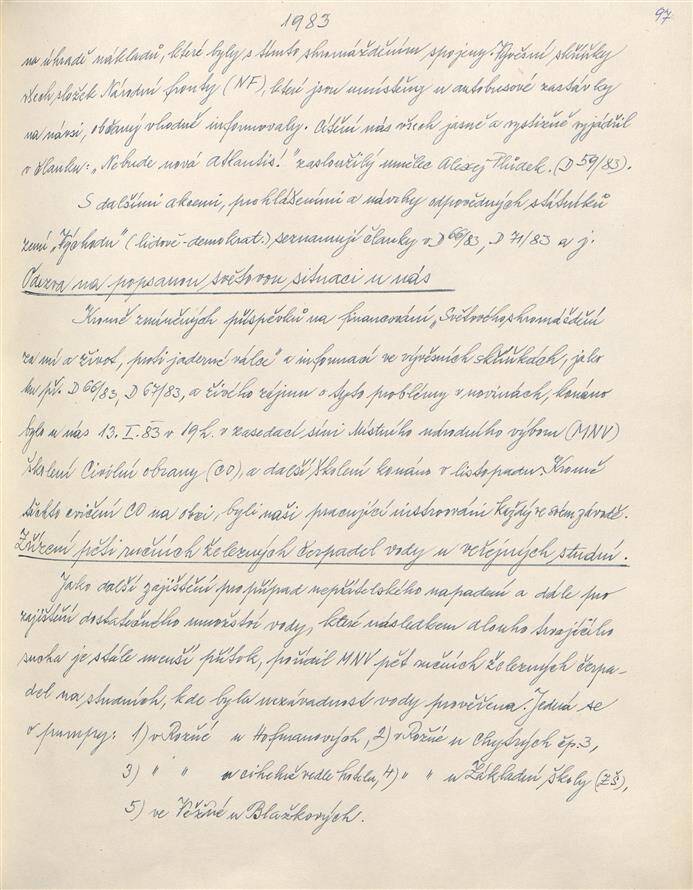 1983
97
na úhradě nákladů, které byly s tímto shromážděním spojeny. Vývěsní skříňky
všech složek Národní fronty (NF), které jsou umístěny u autobusové zastávky
na návsi, občany vhodně informovaly. Cítění nás všech jasně a vystižně vyjádřil
v článku: „Nebude nová Atlantis!" zasloužilý umělec Alexej Pludek. (D 59/83).
S dalšími akcemi, prohlášeními a návrhy odpovědných státníků
zemí „Východu" (lidově-demokrat.) seznamují články v D 66/83, D 71/83 a j.
Odezva na popsanou světovou situaci u nás
Kromě zmíněných příspěvků na financování „Světového shromáždění
za mír a život, proti jaderné válce" a informací ve vývěsních skříňkách, jako
ku př. D 66/83, D 67/83, a živého zájmu o tyto problémy v novinách, konáno
bylo u nás 13. I. 83 v 19 h. v zasedací síni Místního národního výboru (MNV)
školení Civilní obrany (CO), a další školení konáno v listopadu. Kromě
těchto cvičení CO na obci, byli naši pracující instruováni každý ve svém závodě.
Zřízení pěti ručních železných čerpadel vody u veřejných studní.
Jako další zajištění pro případ nepřátelského napadení a dále pro
zajištění dostatečného množství vody, které následkem dlouho trvajícího
sucha je stále menší přítok, pořídil MNV pět ručních železných čerpa-
del na studních, kde byla nezávadnost vody prověřena. Jedná se
o pumpy: 1) v Rožné u Hofmanových, 2) v Rožné u Chytrých čp. 3,
3) " " u cihelně vedle hotelu, 4) " " u Základní školy (ZŠ),
5) ve Věžné u Blažkových.